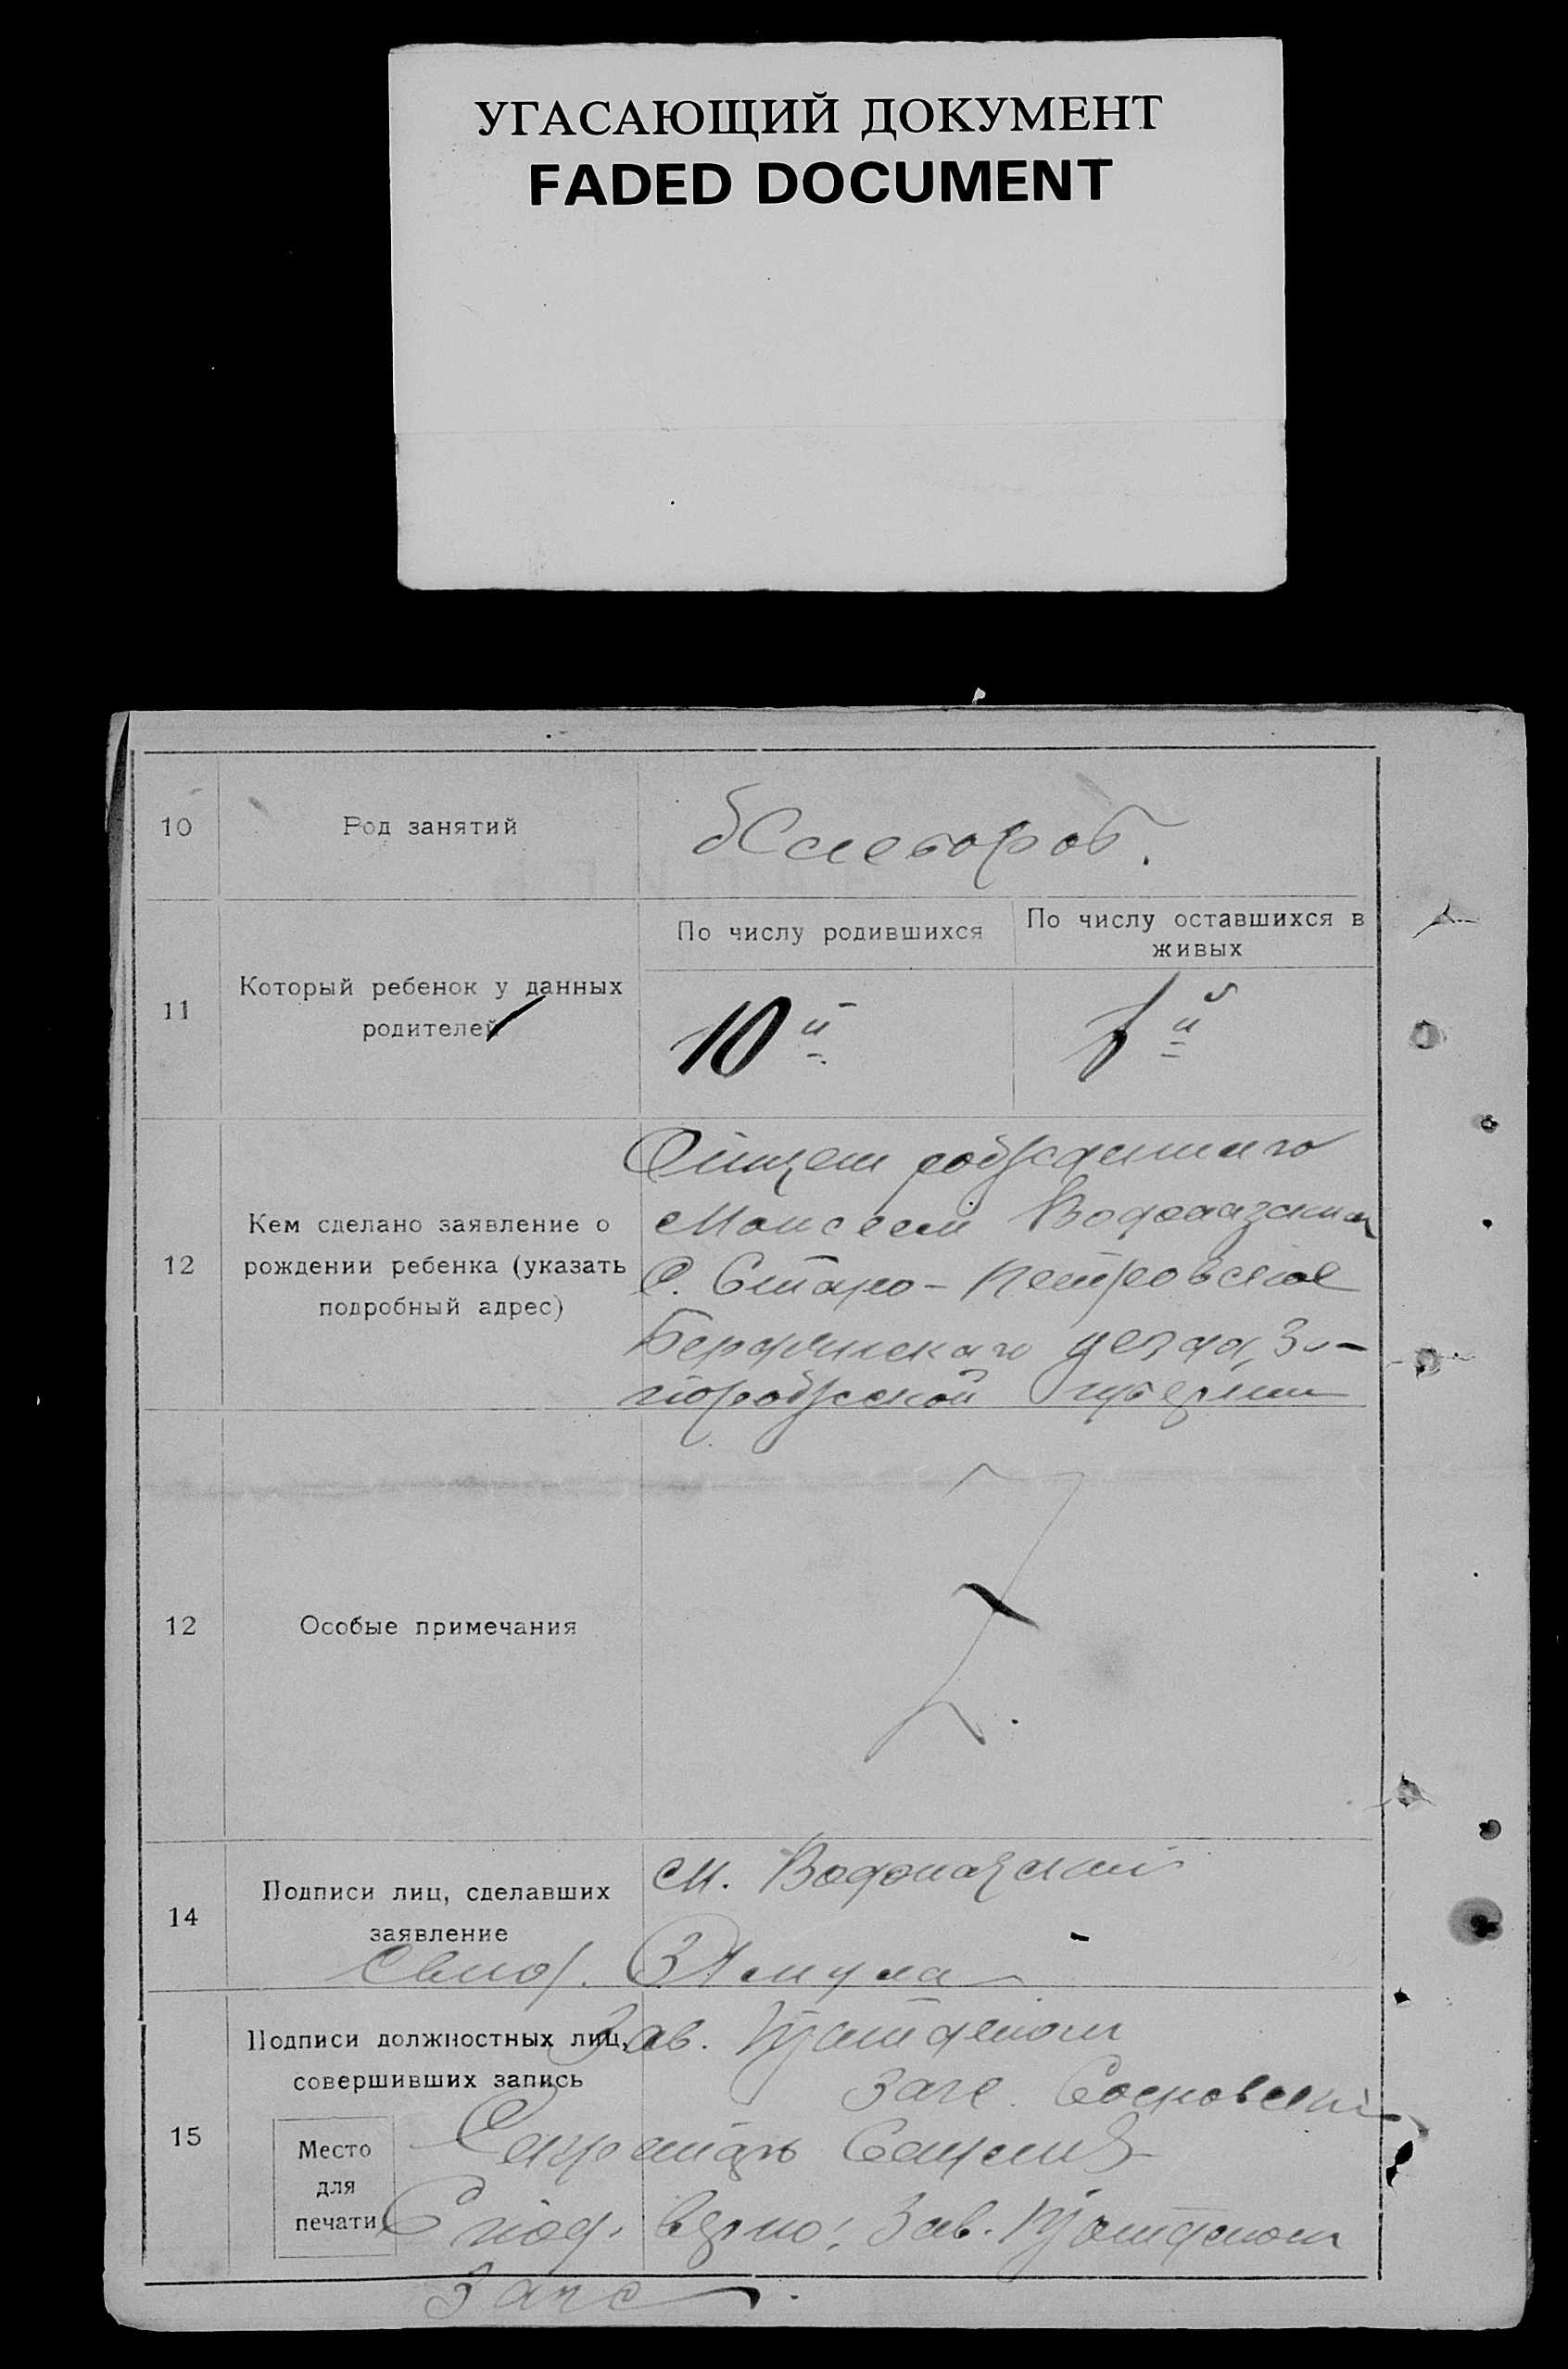 УГАСАЮЩИЙ ДОКУМЕНТ
FADED DOCUMENT
10
Род занятий
Хлебороб.
11
Который ребенок у данных
родителей
По числу родившихся
По числу оставшихся в
живых
10й
й
12
Кем сделано заявление о
рождении ребенка (указать
подробный адрес)
Отцем рожденнаго
Моисеем Водолазским
С. Старо-Петровское
Бердянского уезда, За-
порожской губернии
12
Особые примечания
14
Подписи лиц, сделавших
заявление
М. Водолазский
15
Подписи должностных лиц,
совершивших запись
Место
для
печати
Зав.
Загс. Сосновский
Секретарь
С под. верно: Зав.
Загс